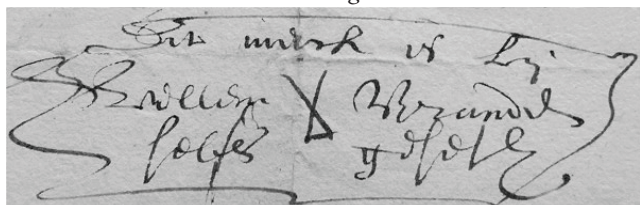 Dit merck is bij
Willem X
selfs gestelt